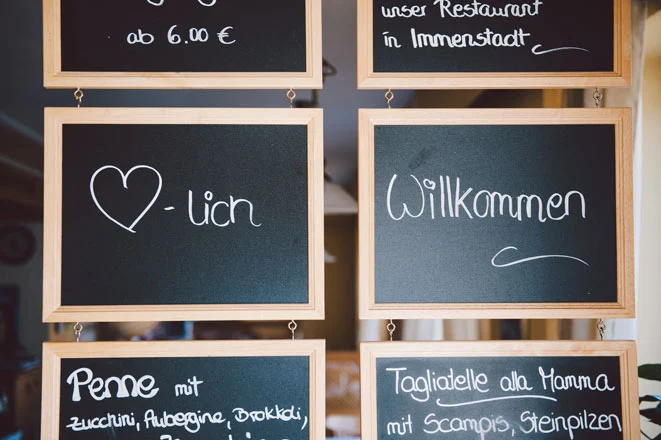 ab 6.00 €
unser Restaurant
in Immenstadt
♡-lich
Willkommen
Penne mit
Zucchini, Aubergine, Brokkoli,
Tagliatelle alla Mamma
mit Scampis, Steinpilzen